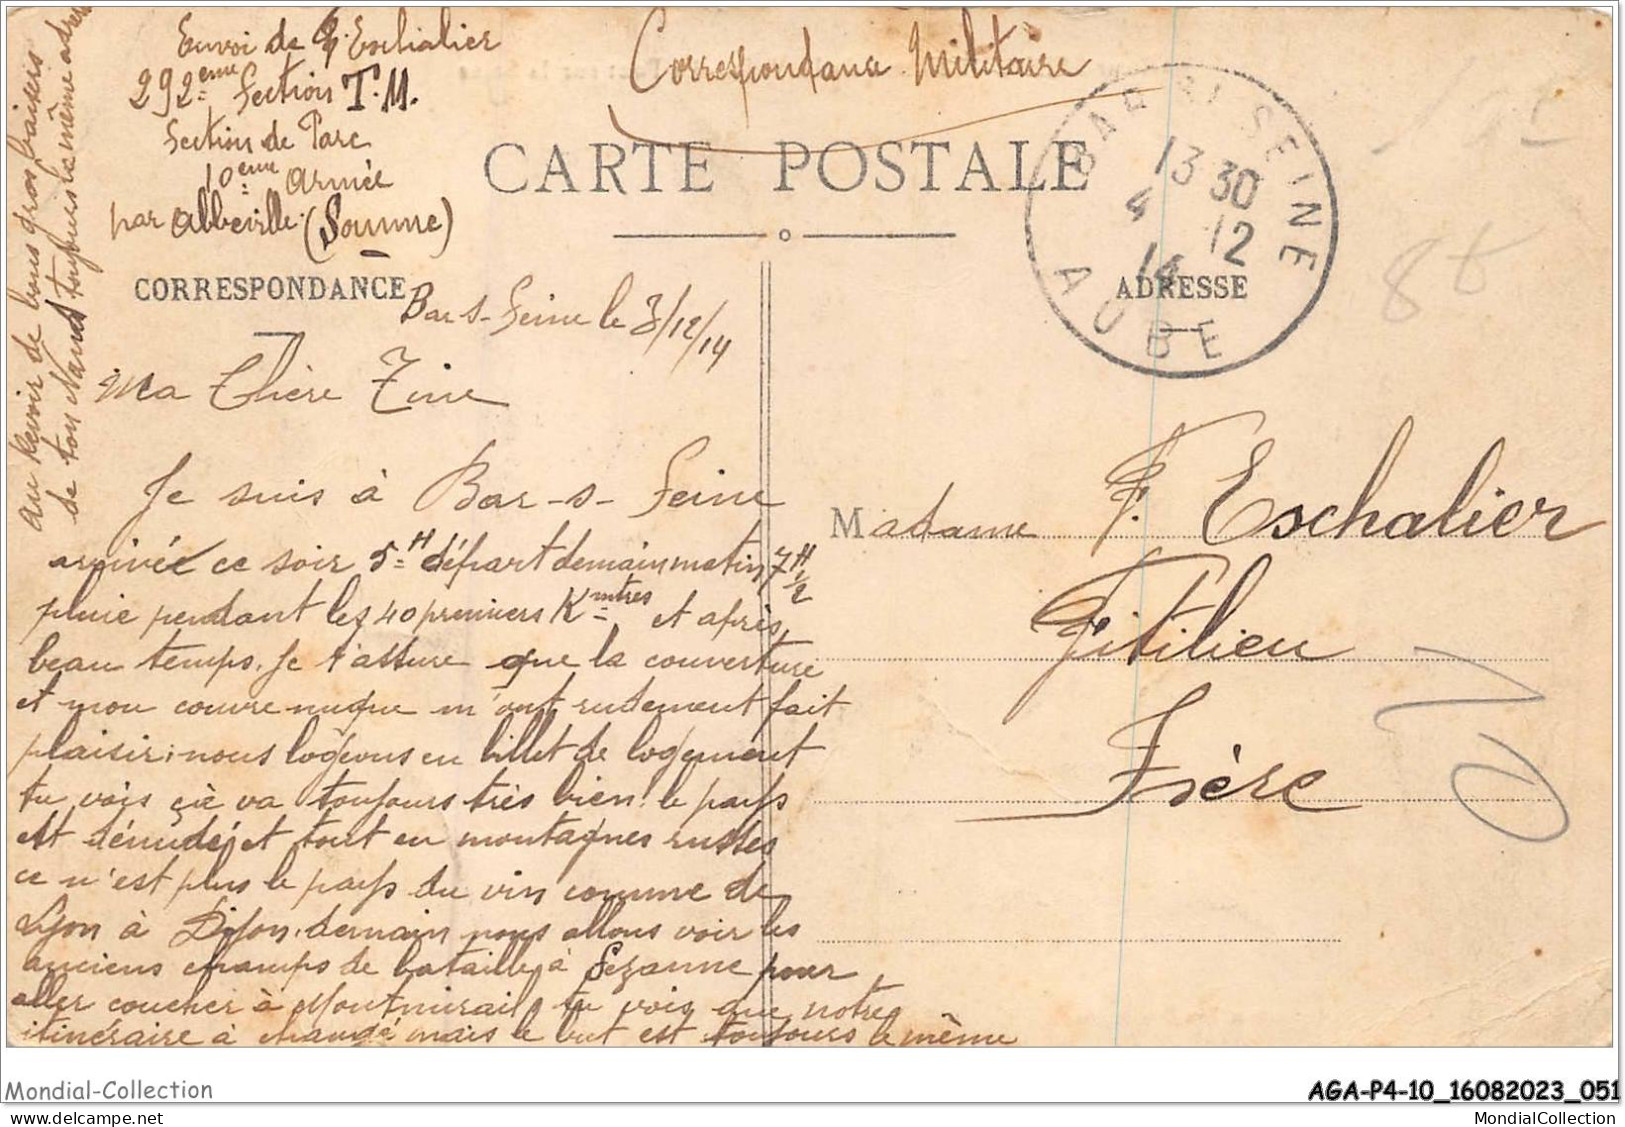 Envoi de G. Eschalier
292ème Section T.M.
Section de Parc
10ème Armée
par Abbeville (Somme)
Correspondance Militaire
CARTE POSTALE
BAR S/ SEINE
13 30
4 12
14
AUBE
CORRESPONDANCE
ADRESSE
Bar-s-Seine le 3/12/14
Ma Chère Tine
Je suis à Bar-s-Seine
arrivée ce soir 5H départ demain matin 7H 1/2
pluie pendant les 40 premiers Kmtres et après
beau temps. Je t'assure que la couverture
et mon couvre nuque m'ont rudement fait
plaisir; nous logeons en billet de logement
tu vois çè va toujours très bien! le pays
est dénudé, et tout en montagnes russes
ce n'est plus le pays du vin comme de
Lyon à Dijon. demain nous allons voir les
anciens champs de bataille à Sezanne pour
aller coucher à Montmirail, tu vois que notre
itinéraire à changé mais le but est toujours le même
Au Revoir de bons gros baisers
de ton Nand toujours la même adresse
Madame F. Eschalier
Fitilieu
Isère
8t
Mondial-Collection
AGA-P4-10_16082023_051
MondialCollection